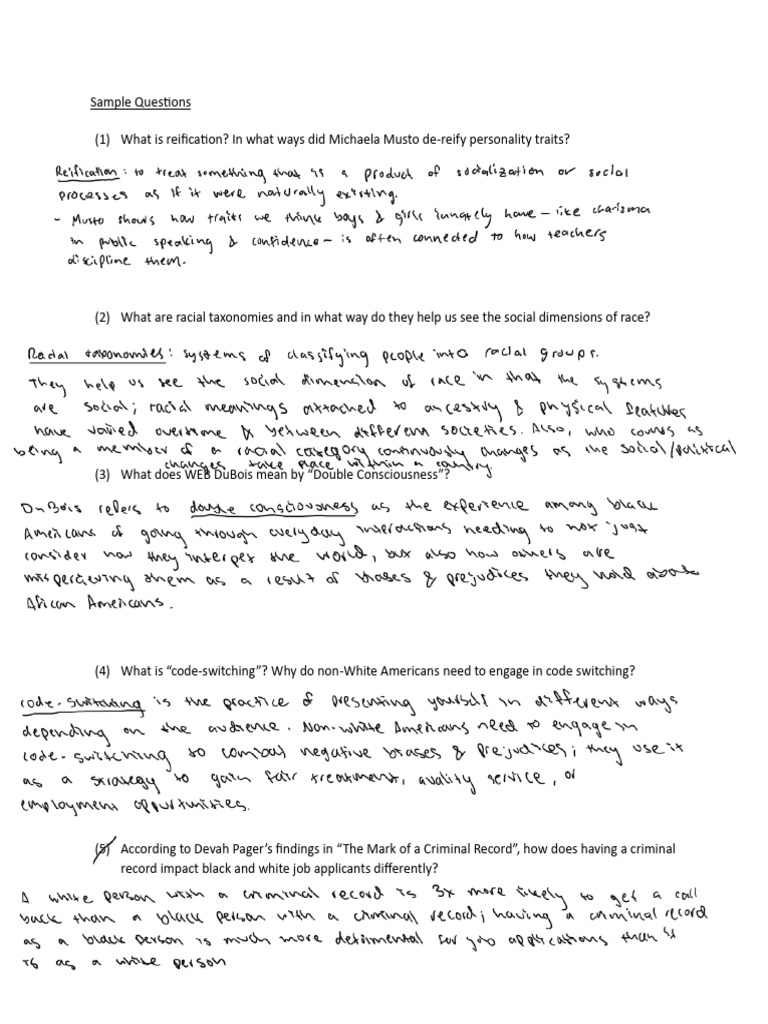 Sample Questions
(1) What is reification? In what ways did Michaela Musto de-reify personality traits?
Reification: to treat something that is a product of socialization or social
processes as if it were naturally existing.
- Musto shows how traits we think boys & girls innately have – like charisma
in public speaking & confidence – is often connected to how teachers
discipline them.
(2) What are racial taxonomies and in what way do they help us see the social dimensions of race?
Racial taxonomies: systems of classifying people into racial groups.
They help us see the social dimension of race in that the systems
are social; racial meanings attached to ancestry & physical features
have varied overtime & between different societies. Also, who counts as
being a member of a racial category continuously changes as the social/political
changes take place within a country.
(3) What does WEB DuBois mean by “Double Consciousness”?
DuBois refers to double consciousness as the experience among black
Americans of going through everyday interactions needing to not just
consider how they interpet the world, but also how others are
mispercieving them as a result of biases & prejudices they hold about
African Americans.
(4) What is “code-switching”? Why do non-White Americans need to engage in code switching?
code-switching is the practice of presenting yourself in different ways
depending on the audience. Non-white Americans need to engage in
code-switching to combat negative biases & prejudices; they use it
as a strategy to gain fair treatment, quality service, or
employment oppurtunities.
(5) According to Devah Pager’s findings in “The Mark of a Criminal Record”, how does having a criminal
record impact black and white job applicants differently?
A white person with a criminal record is 3x more likely to get a call
back than a black person with a criminal record; having a criminal record
as a black person is much more detrimental for job applications than it
is as a white person